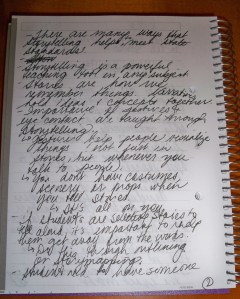 - There are many ways that
storytelling helps meet state
standards!
Storytelling is a powerful
teaching tool in any subject
Stories are how we
remember things.
hold ideas & concepts together.
Importance of gestures &
eye contact are taught through
storytelling.
- Gestures help people visualize
things not just in
stories but whenever you
talk to people)
- You don't have costumes,
scenery or props when
you tell stories.
- It's all on you.
If students are stories to
aloud, it's important to help
them get away from the words.
- Do this through outlining
or storymapping
- to have someone
2